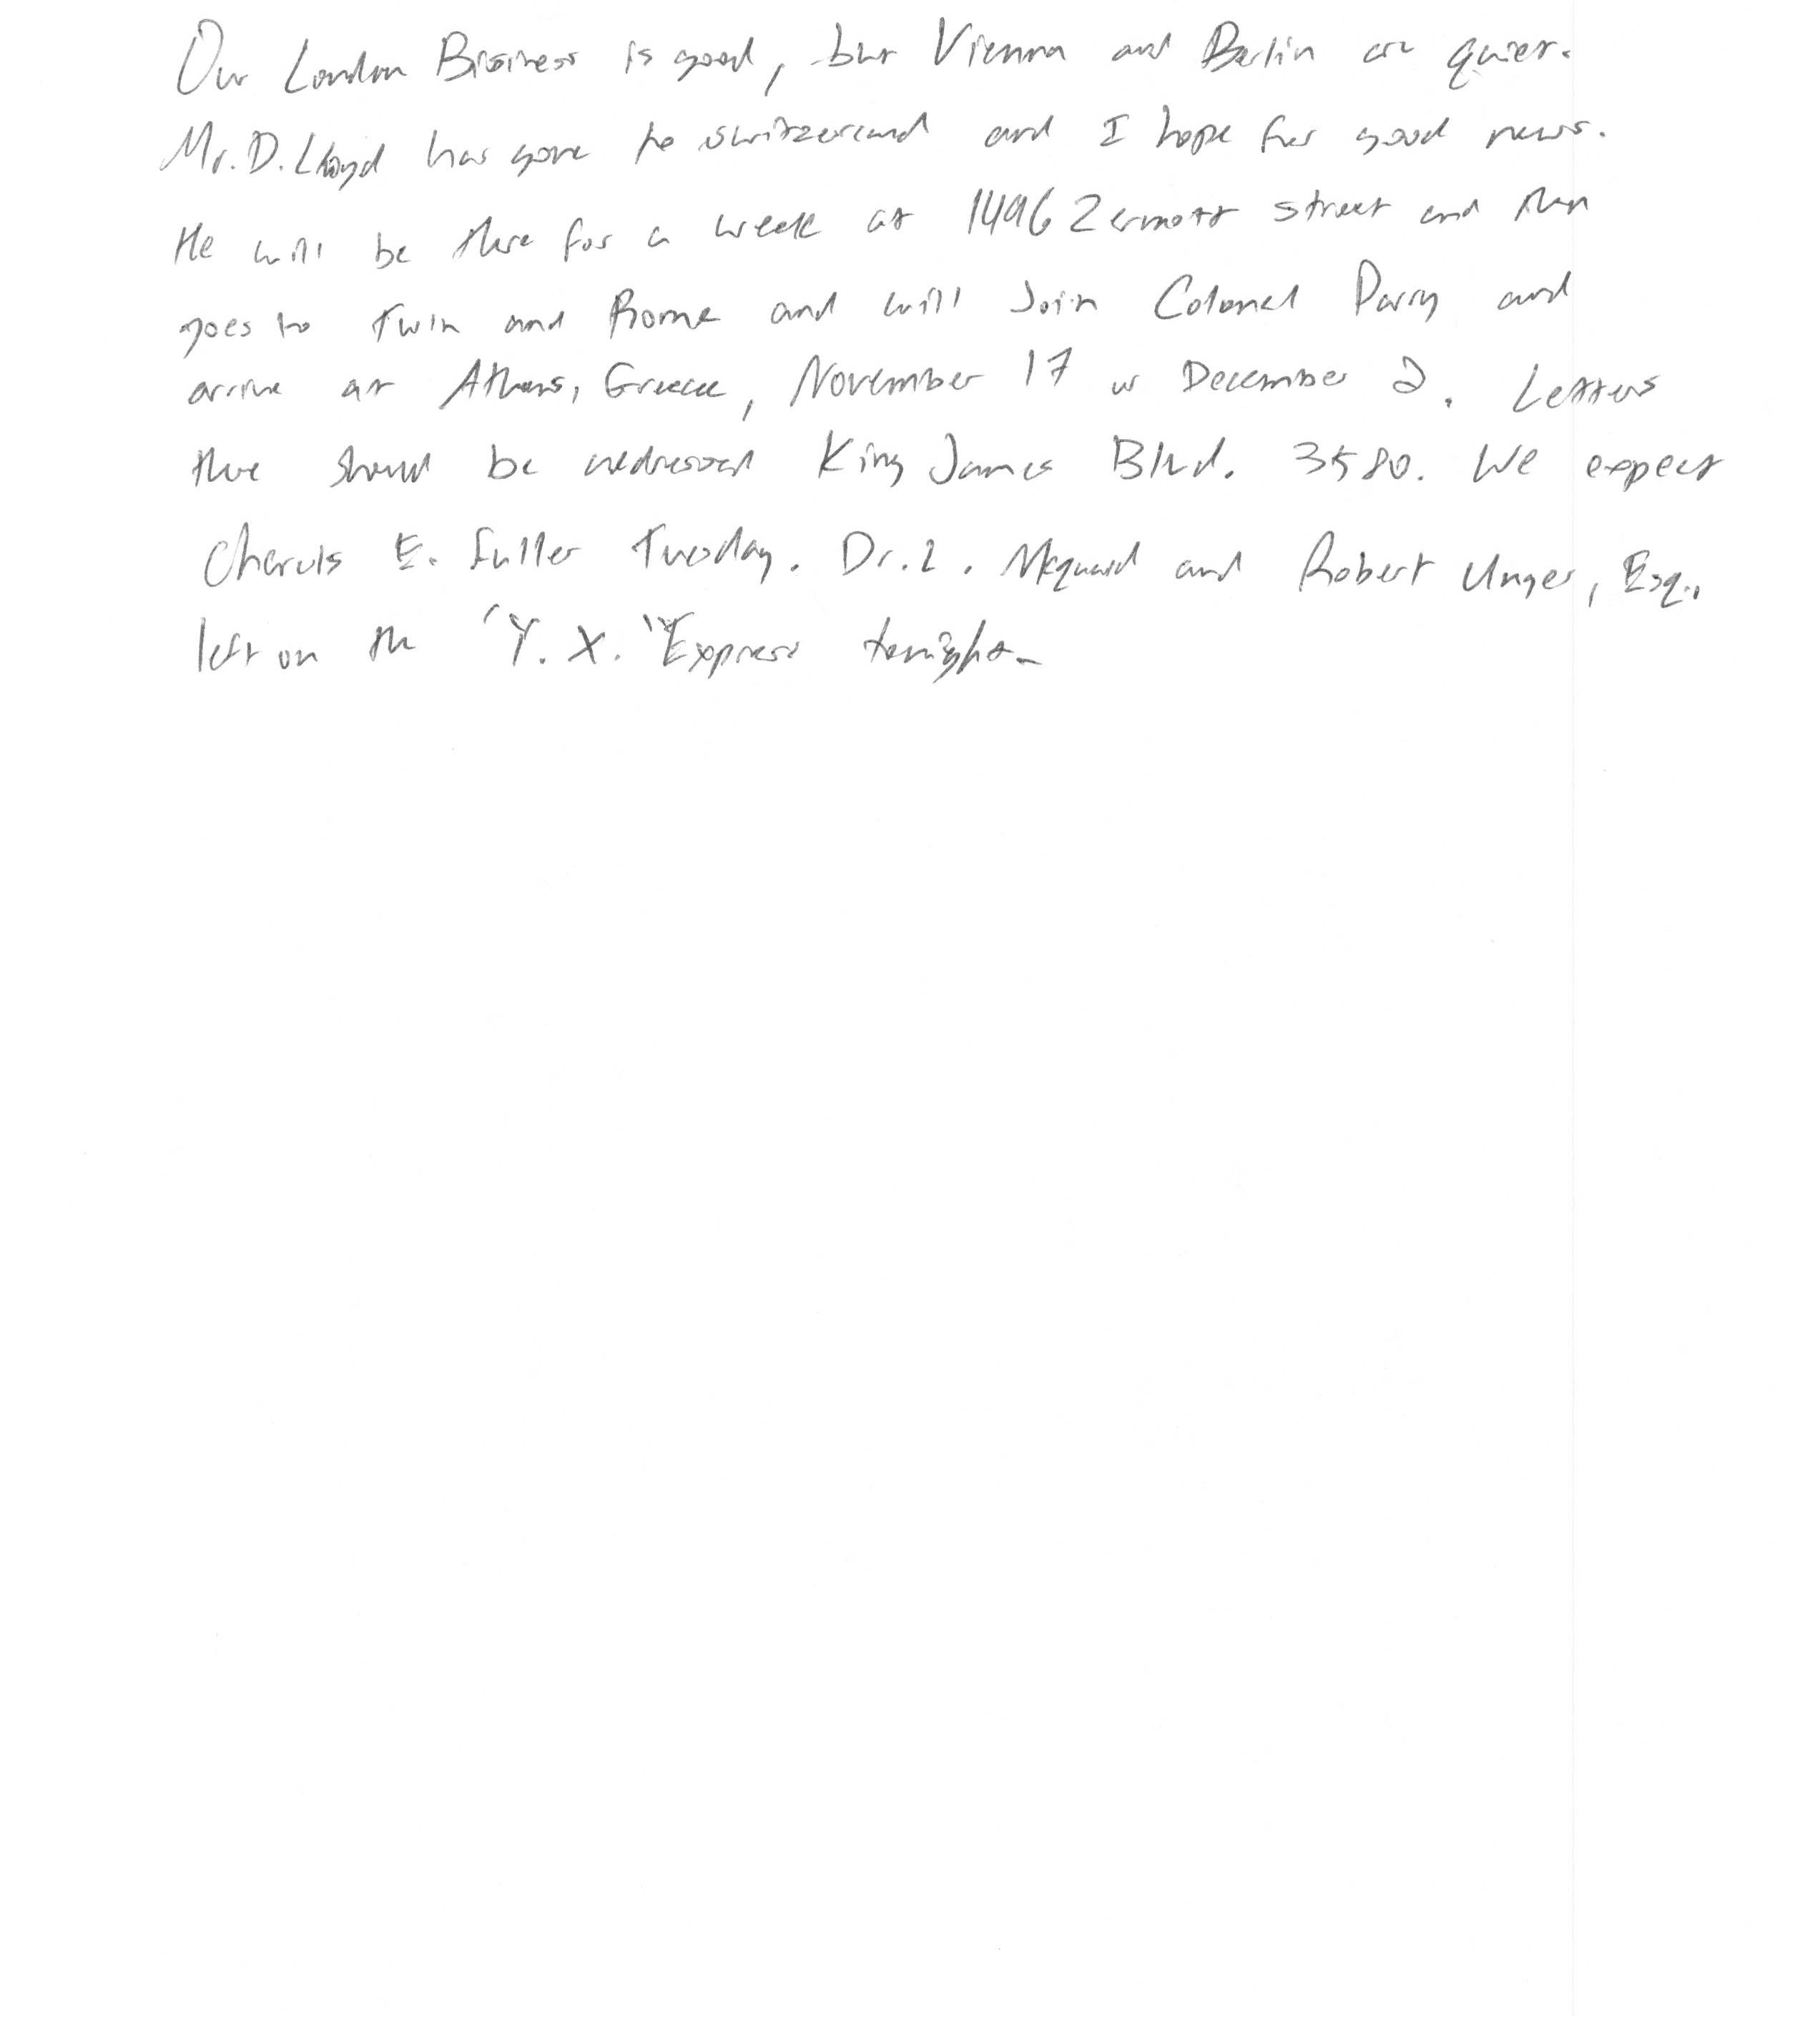 Our London Business is good, but Vienna and Berlin are quiet.
Mr. D. Lloyd has gone to Switzerland and I hope for good news.
He will be there for a week at 1496 Zermott street and then
goes to Turin and Rome and will Join Colonel Parry and
arrive at Athens, Greece, November 17 or December 2. Letters
there should be addressed King James Blvd. 3580. We expect
Charels E. Fuller Tuesday. Dr. L. Mcquaid and Robert Unger, Esq.,
left on the "Y. X." Express tonight.